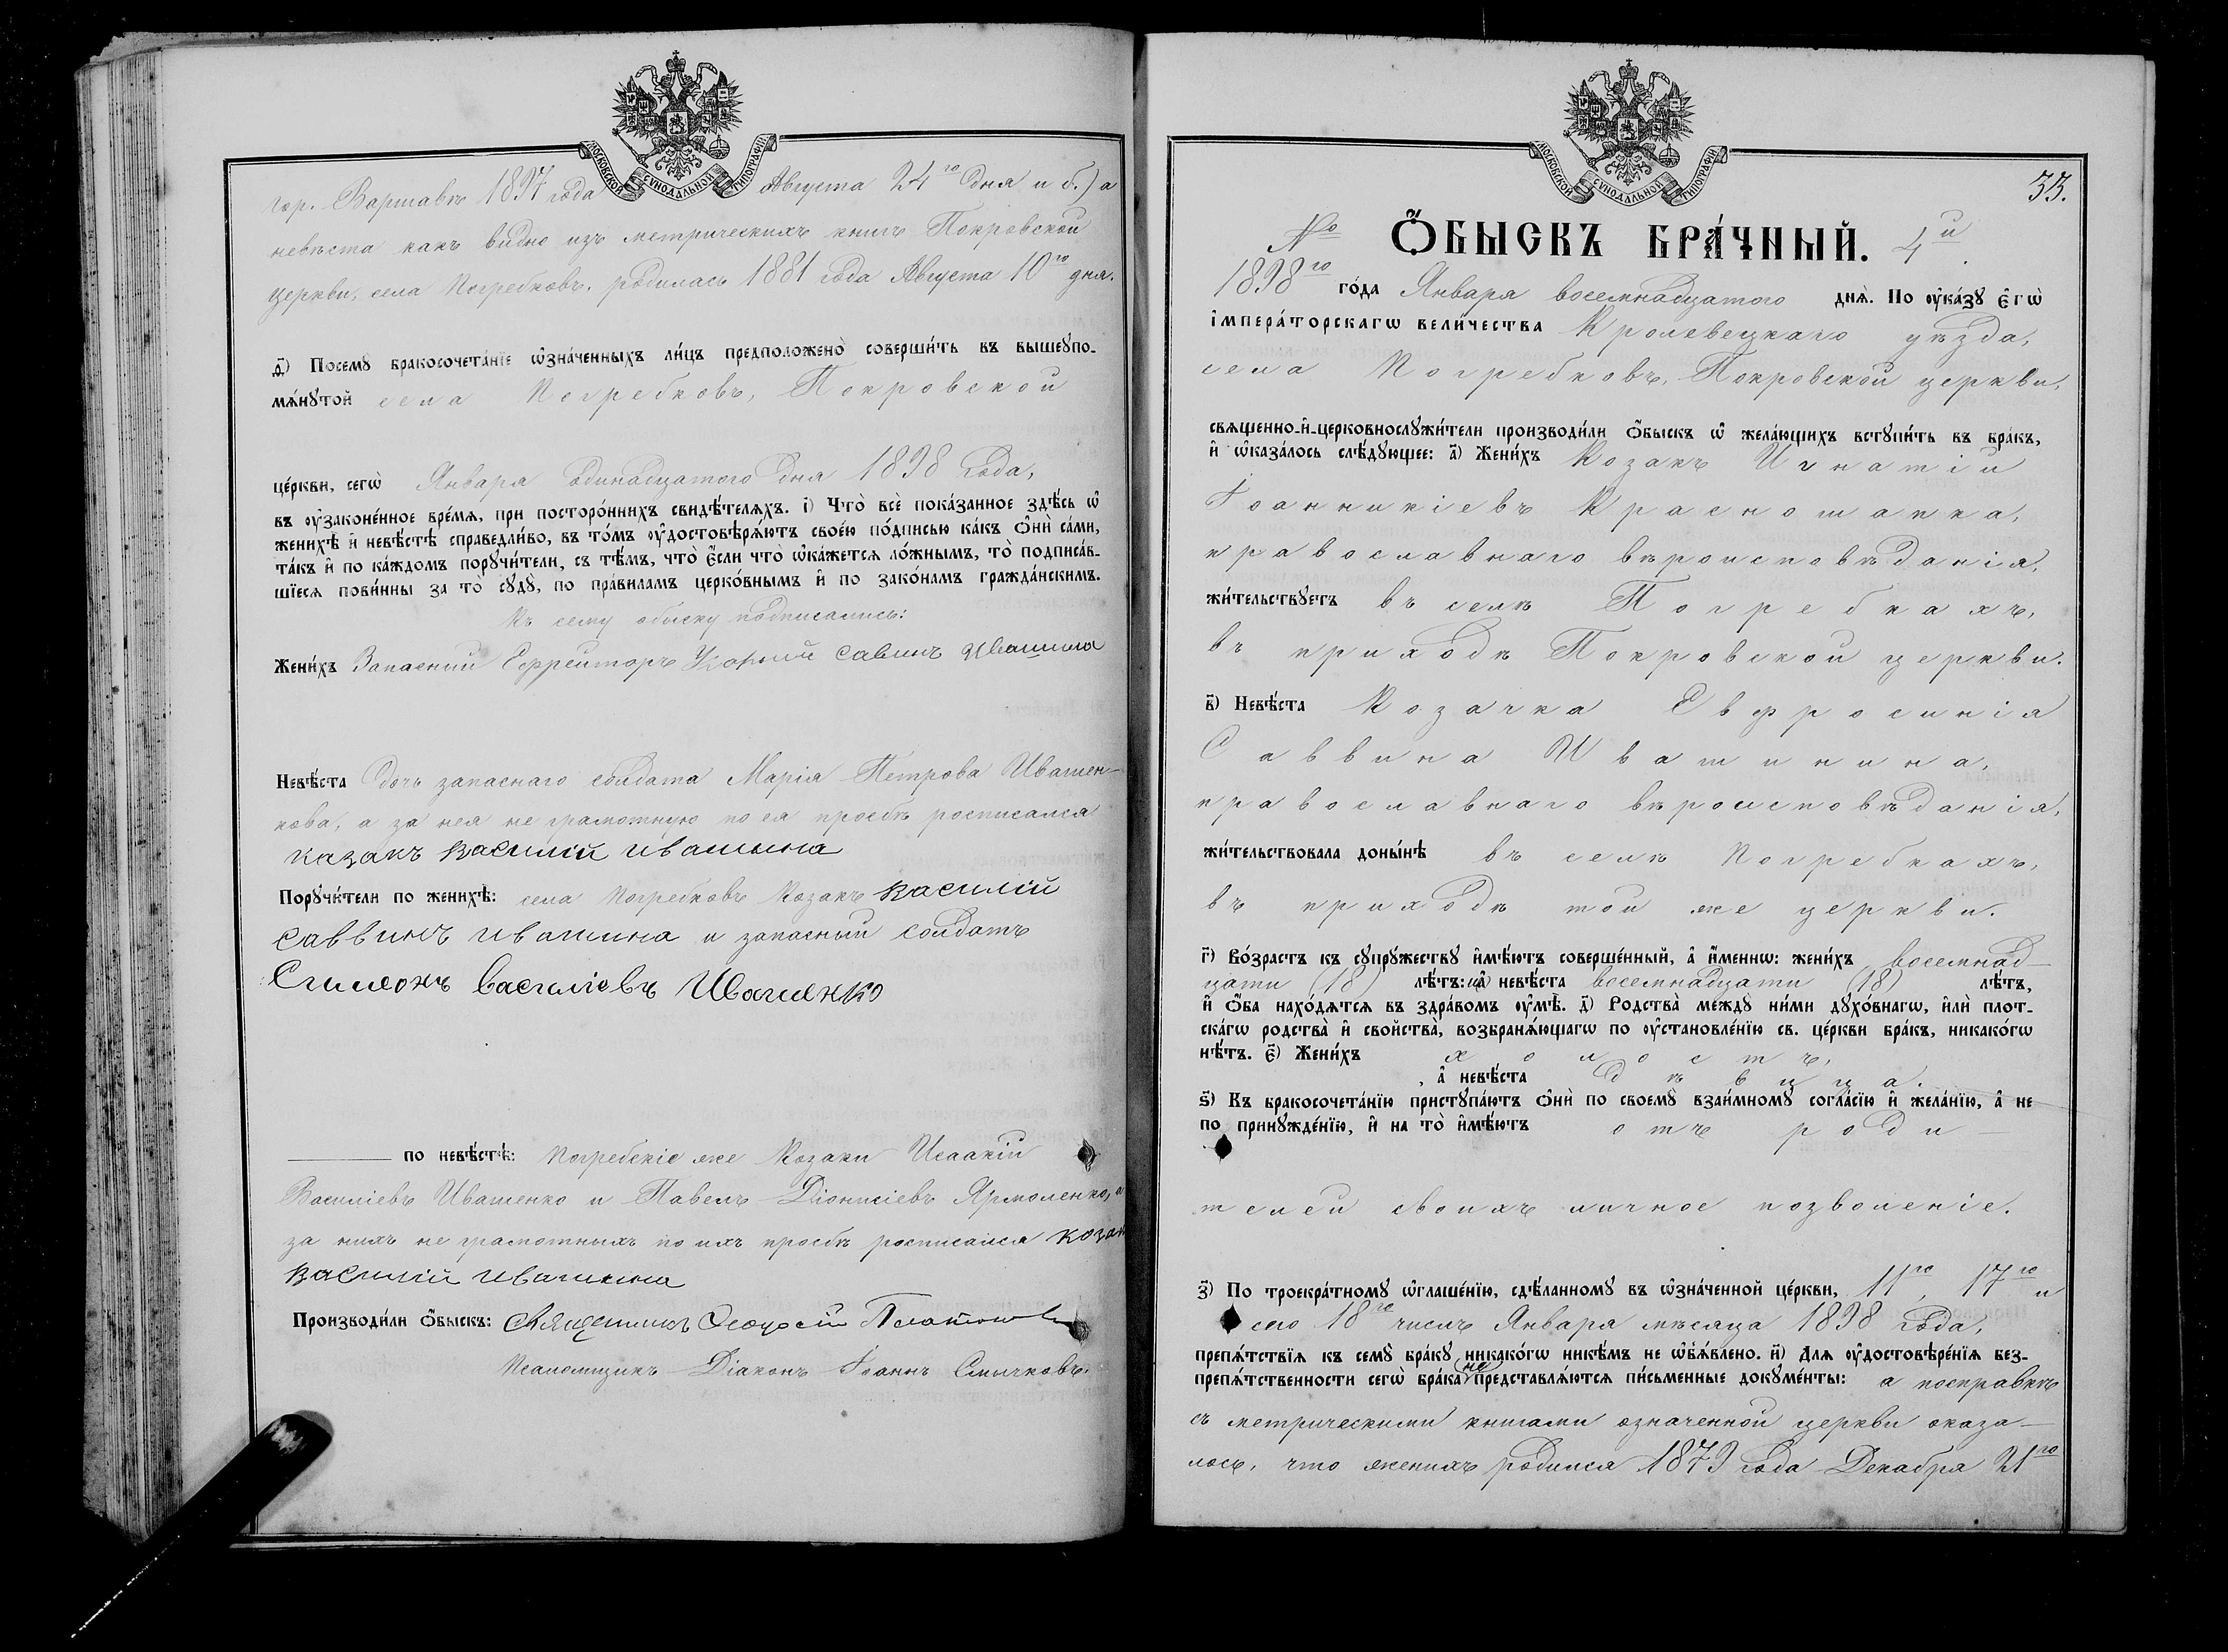 МОСКОВСКОЙ СѴНОДАЛЬНОЙ ТИПОГРАФІИ
гор. Варшавѣ 1897 года Августа 24го дня и б.) а
невѣста какъ видно изъ метрическихъ книгъ Покровской
церкви, села Погребковъ, родилась 1881 года Августа 10го дня.
д҃) Посемꙋ бракосочета́нїе ѡ҆зна́ченныхъ ли́цъ предположено̀ соверши́ть въ вышеꙋпо-
мѧ́нꙋтой села Погребковъ, Покровской
це́ркви, сегѡ̀ Января одинадцатого дня 1898 года,
въ ᲂу҆законе́нное вре́мѧ, при посторо́ннихъ свидѣ́телѧхъ. і) Что̀ всѐ пока́занное здѣ́сь ѡ҆
женихѣ̀ и҆ невѣ́стѣ справедли́во, въ то́мъ ᲂу҆достовѣрѧ́ютъ свое́ю по́дписью ка́къ ѻ҆нѝ са́ми,
та́къ и҆ по ка́ждомъ порꙋчи́тели, съ тѣ́мъ, что̀ є҆́сли что̀ ѡ҆ка́жетсѧ ло́жнымъ, то̀ подписа́в-
шїесѧ пови́нны за то̀ сꙋдꙋ̀, по пра́виламъ церко́внымъ и҆ по зако́намъ гражда́нскимъ.
Къ сему обыску подписались:
Жени́хъ Запасний Ефрейторъ Савинъ Ивашина
Невѣ́ста дочь запаснаго солдата Марія Петрова Ивашен-
кова, а за нея не грамотную по ея просьбѣ росписался
казакъ василій ивашина
Порꙋчи́тели по женихѣ̀: села Погребковъ Козакъ василій
саввинъ ивашина и запасный солдатъ
Симеонъ Василіевъ Ивашенко
по невѣ́стѣ: Погребскіе же Козаки Исаакій
Василіевъ Ивашенко и Павелъ Діонисіевъ Ярмоленко, а
за нихъ не грамотныхъ по ихъ просьбѣ росписался козак
василій ивашина
Производи́ли ѻ҆́быскъ: Священникъ Ѳеодосій
Псаломщикъ Діаконъ Іоаннъ Смычковъ.
МОСКОВСКОЙ СѴНОДАЛЬНОЙ ТИПОГРАФІИ
33.
№ Ѻ҆́БЫСКЪ БРА́ЧНЫЙ. 4й.
1898го го́да Января восемнадцатого днѧ̀. По ᲂу҆ка́зꙋ є҆гѡ̀
і҆мпера́торскагѡ вели́чества Кролевецкаго уѣзда,
села Погребковъ, Покровской церкви,
свѧщенно-и҆-церковнослꙋжи́тели производи́ли ѻ҆́быскъ ѡ҆ жела́ющихъ встꙋпи́ть въ бра́къ,
и҆ ѡ҆каза́лось слѣ́дꙋющее: а҃) Жени́хъ Козакъ Игнатій
Іоанникіевъ Красношапка,
православнаго вѣроисповѣданія,
жи́тельствꙋетъ въ селѣ Погребкахъ,
въ приходѣ Покровской церкви.
в҃) Невѣ́ста Козачка Евфросинія
Саввина Ивашинина,
православнаго вѣроисповѣданія,
жи́тельствовала доны́нѣ въ селѣ Погребкахъ,
въ приходѣ той же церкви.
г҃) Во́зрастъ къ сꙋпрꙋ́жествꙋ и҆мѣ́ютъ соверше́нный, а҆ и҆́меннѡ: жени́хъ восемнад-
цати (18) лѣ́тъ: а҆ невѣ́ста восемнадцати (18) лѣ́тъ,
и҆ ѻ҆́ба нахо́дѧтсѧ въ здра́вомъ ᲂу҆мѣ̀. д҃) Родства̀ междꙋ ни́ми дꙋхо́внагѡ, и҆лѝ плот-
ска́гѡ родства̀ и҆ свойства̀, возбранѧ́ющагѡ по ᲂу҆становле́нїю св. це́ркви бра́къ, никако́гѡ
нѣ́тъ. є҃) Жени́хъ холостъ,
, а҆ невѣ́ста дѣвица.
ѕ҃) Къ бракосочета́нїю пристꙋпа́ютъ ѻ҆нѝ по своемꙋ̀ взаи́мномꙋ согла́сїю и҆ жела́нїю, а҆ не
по принꙋжде́нїю, и҆ на то̀ и҆мѣ́ютъ отъ роди-
телей своихъ личное позволеніе.
з҃) По троекра́тномꙋ ѡ҆глаше́нїю, сдѣ́ланномꙋ въ ѡ҆зна́ченной це́ркви, 11го, 17го и
сего 18го числъ Января мѣсяца 1898 года,
препѧ́тствїѧ къ семꙋ̀ бра́кꙋ никако́гѡ никѣ́мъ не ѡ҆б̾ѧ́влено. и҃) Длѧ ᲂу҆достовѣре́нїѧ без-
препѧ́тственности сегѡ̀ бра́ка не представлѧ́ютсѧ пи́сьменные докꙋме́нты: а посправкѣ
съ метрическими книгами означенной церкви оказа-
лось, что женихъ родился 1879 года Декабря 21го